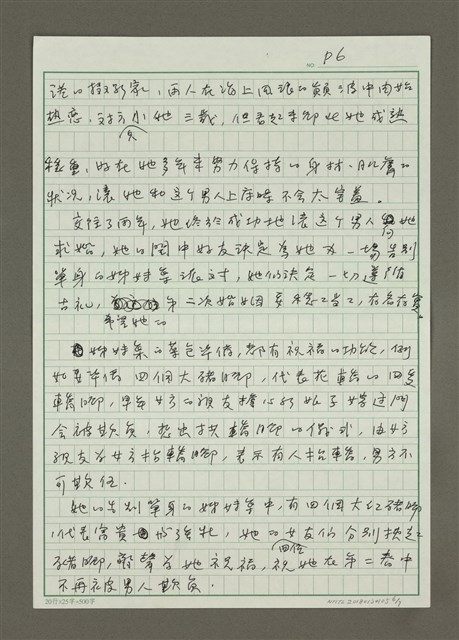 NO. P6
港的投影家，兩人在海上風浪的顛波中開始
熱戀，對方小她三歲，但看起來卻比她成熟
穩重，好在她多年來努力保持的身材、肌膚的
狀況，讓她和這個男人上床時不會太害羞。
交往了兩年，她終於成功地讓這個男人向她
求婚，她的閨中好友決定為她辦一場告別
單身的姊妹桌派對，她們決定一切遵循
古禮，希望她的第二次婚姻
姊妹桌的菜色準備，都有祝福的功能，例
如要準備四個大豬腳，代表花轎的四隻
轎腳，早年女方的親友擔心新娘子嫁過門
會被欺負，想出扶轎腳的儀式，由女方
親友為女方抬轎腳，表示有人抬轎，男方不
可欺侮。
她的告別單身的姊妹桌中，有四個大紅豬腳
代表富貴，她的女友們分別扶起
豬腳，齊聲為她祝福，祝她在第二春中
不再被男人欺負。
20行×25字=500字